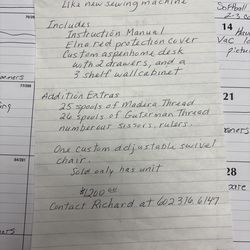 Like new sewing machine
Includes
Instruction Manual
Elna red protection cover
Custom aspenhome desk
with 2 drawers, and a
3 shelf wall cabinet
Addition Extras
25 spools of Madera Thread
26 spools of Guterman Thread
numberous sissors, rulers.
One custom addjustable swivel
chair.
Sold only has unit
$1200.00
Contact Richard at 602 316 6147
Softball
14
Vac
21
28